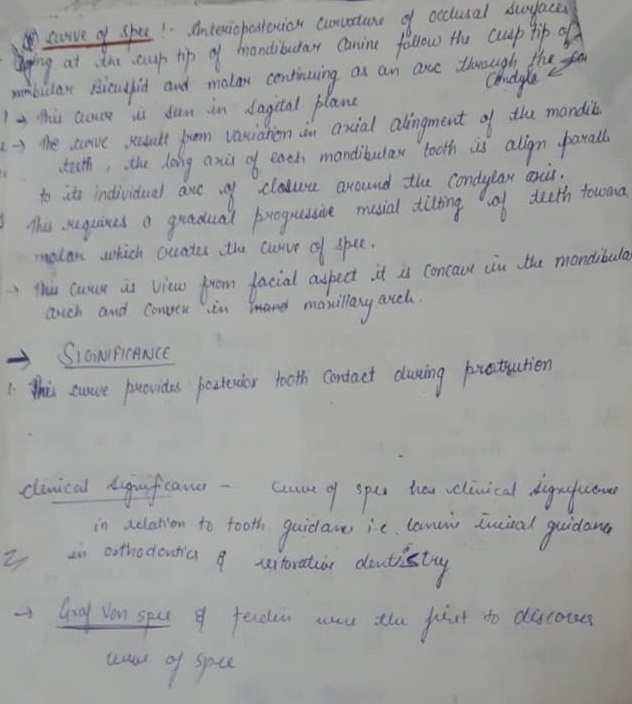 curve of spee :- Anterioposterior curvature of occlusal surfaces
at the cusp tip of mandibular canine follow the cusp tip of
Bicuspid and molar continuing as an arc through the
Condyle
→ This curve is seen in Sagital plane
→ The curve result from variation in axial alingment of the mandib
teeth, the long axis of each mandibular tooth is align paralle
to its individual arc of closure around the condylar axis.
This requires a gradual progressive mesial tilting of teeth toward
molar which creates the curve of spee.
→ This curve is view from facial aspect it is concave in the mandibula
arch and convex in maxillary arch.
→ SIGNIFICANCE
1. This curve provides posterior tooth contact during protrution
clinical significance - Curve of spee has clinical significance
in relation to tooth guidance i.e. canine incisal guidance
in orthodontics & restorative dentistry
→ Graf Von spee & were the first to discover
curve of spee